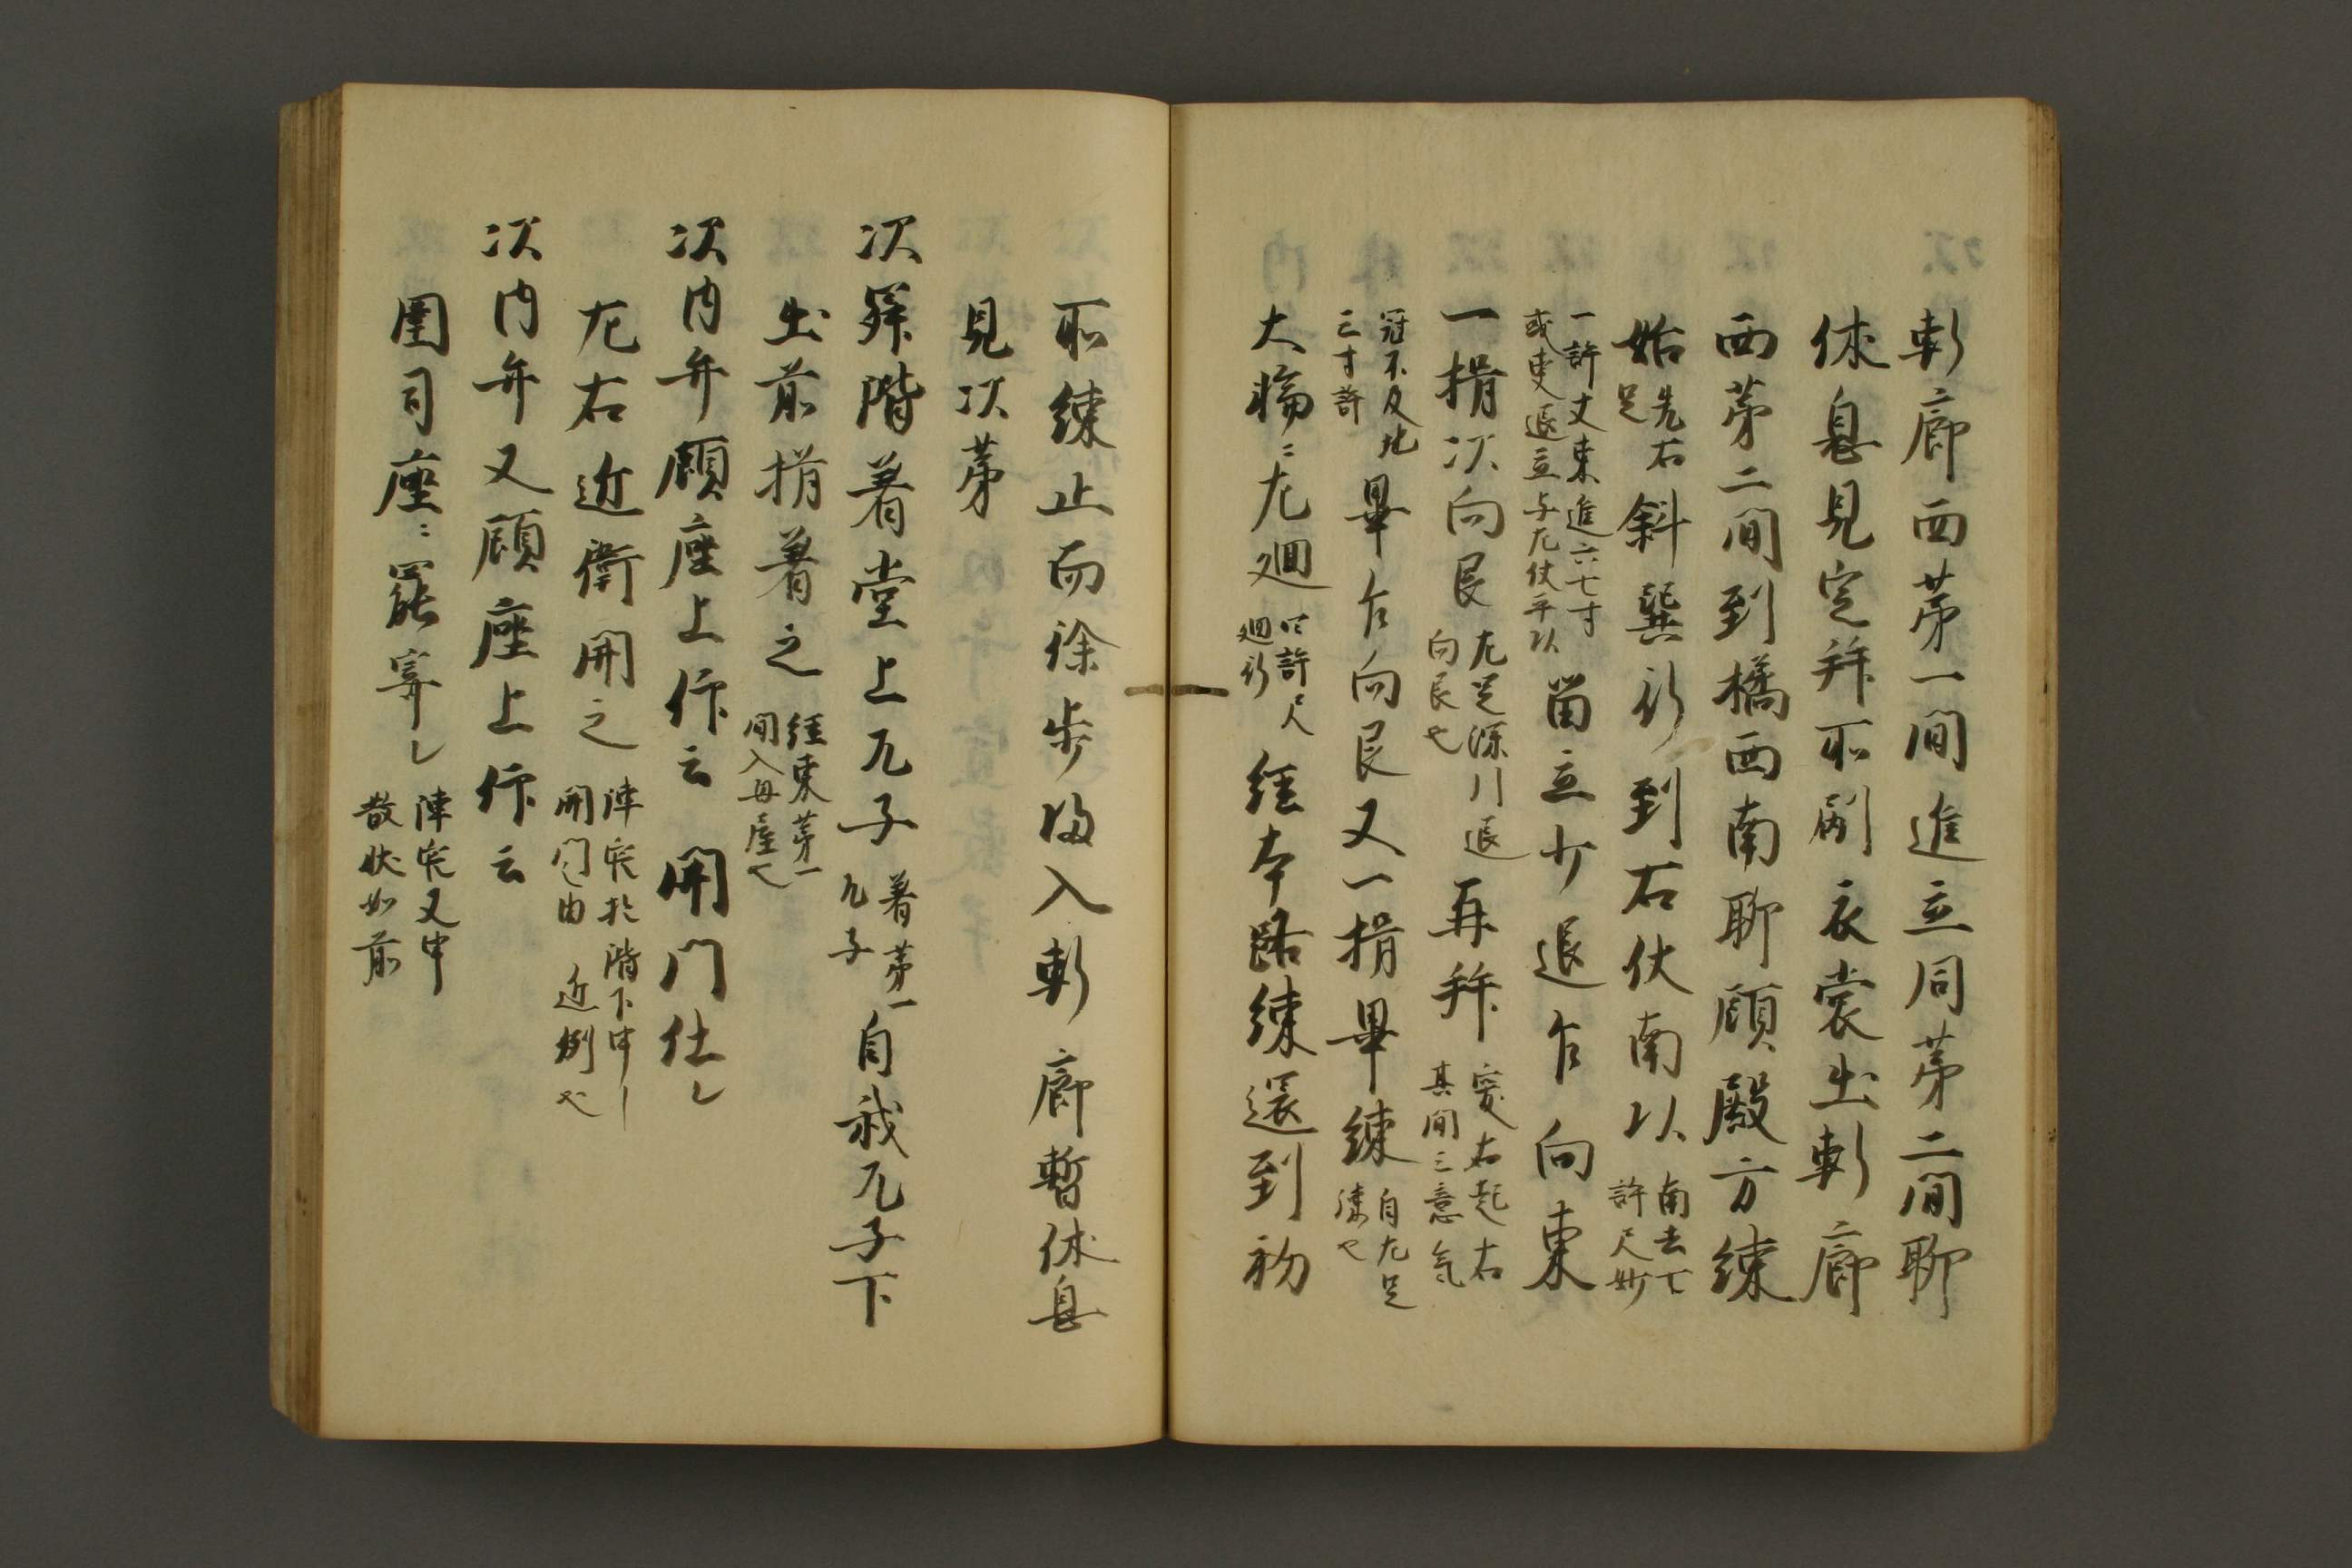 軒廊西第一間進立同第二間聊
休息見定拜所刷衣裳出軒廊
西第二間到橘西南聊顧殿方練
始先右足斜巽行到右仗南以南去七許尺妙
一許丈東進六七寸或更退立与左仗平以留立少退乍向東
一揖次向艮左足深引退向艮也再拜突右起右其間三意気
冠不及地三寸許畢乍向艮又一揖畢練自左足練也
大輪〻左廻只許尺廻行経本路練還到初
所練止而徐歩帰入軒廊暫休息
見次第
次昇階着堂上兀子着第一兀子自我兀子下
出前揖着之経東第一間入母屋也
次内弁顧座上作云開門仕レ
左右近衛開之陣官於階下申開門之由近例也
次内弁又顧座上作云
圍司座〻罷寄レ陣官又申散状如前